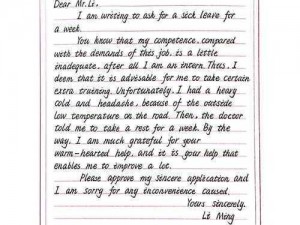 Dear Mr. Li,
I am writing to ask for a sick leave for
a week.
You know that my competence, compared
with the demands of this job, is a little
inadequate, after all I am an intern. Thus, I
deem that it is advisable for me to take certain
extra training. Unfortunately, I had a heary
told and headache, because of the outside
low temperature on the road. Then, the doctor
told me to take a rest for a week. By the
way, I am much grateful for your
warm-hearted help, and it is your help that
enables me to improve a lot.
Please approve my sincere application and
I am sorry for any inconvenience caused.
Yours sincerely,
Li Ming